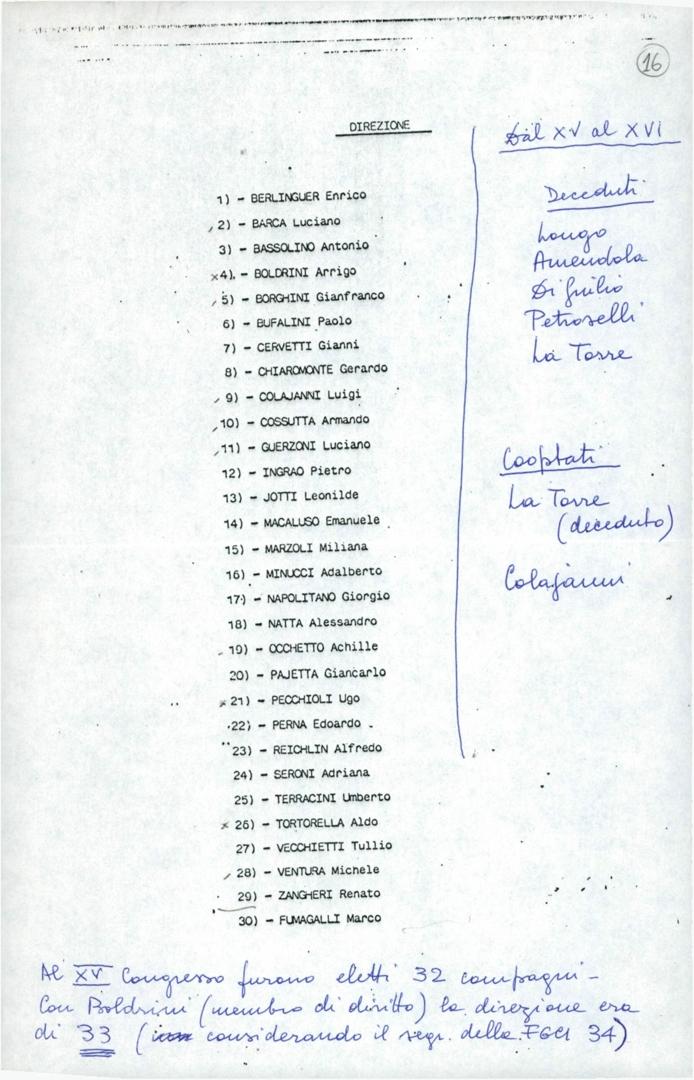 16
DIREZIONE
1) - BERLINGUER Enrico
2) - BARCA Luciano
3) - BASSOLINO Antonio
x4) - BOLDRINI Arrigo
5) - BORGHINI Gianfranco
6) - BUFALINI Paolo
7) - CERVETTI Gianni
8) - CHIAROMONTE Gerardo
9) - COLAJANNI Luigi
10) - COSSUTTA Armando
11) - GUERZONI Luciano
12) - INGRAO Pietro
13) - JOTTI Leonilde
14) - MACALUSO Emanuele
15) - MARZOLI Miliana
16) - MINUCCI Adalberto
17) - NAPOLITANO Giorgio
18) - NATTA Alessandro
19) - OCCHETTO Achille
20) - PAJETTA Giancarlo
x 21) - PECCHIOLI Ugo
22) - PERNA Edoardo
23) - REICHLIN Alfredo
24) - SERONI Adriana
25) - TERRACINI Umberto
x 26) - TORTORELLA Aldo
27) - VECCHIETTI Tullio
28) - VENTURA Michele
29) - ZANGHERI Renato
30) - FUMAGALLI Marco
Dal XV al XVI
Deceduti
Longo
Amendola
Di Giulio
Petroselli
La Torre
Cooptati
La Torre
(deceduto)
Colajanni
Al XV Congresso furono eletti 32 compagni -
Con Boldrini (membro di diritto) la direzione era
di 33 ( considerando il segr. della FGCI 34)